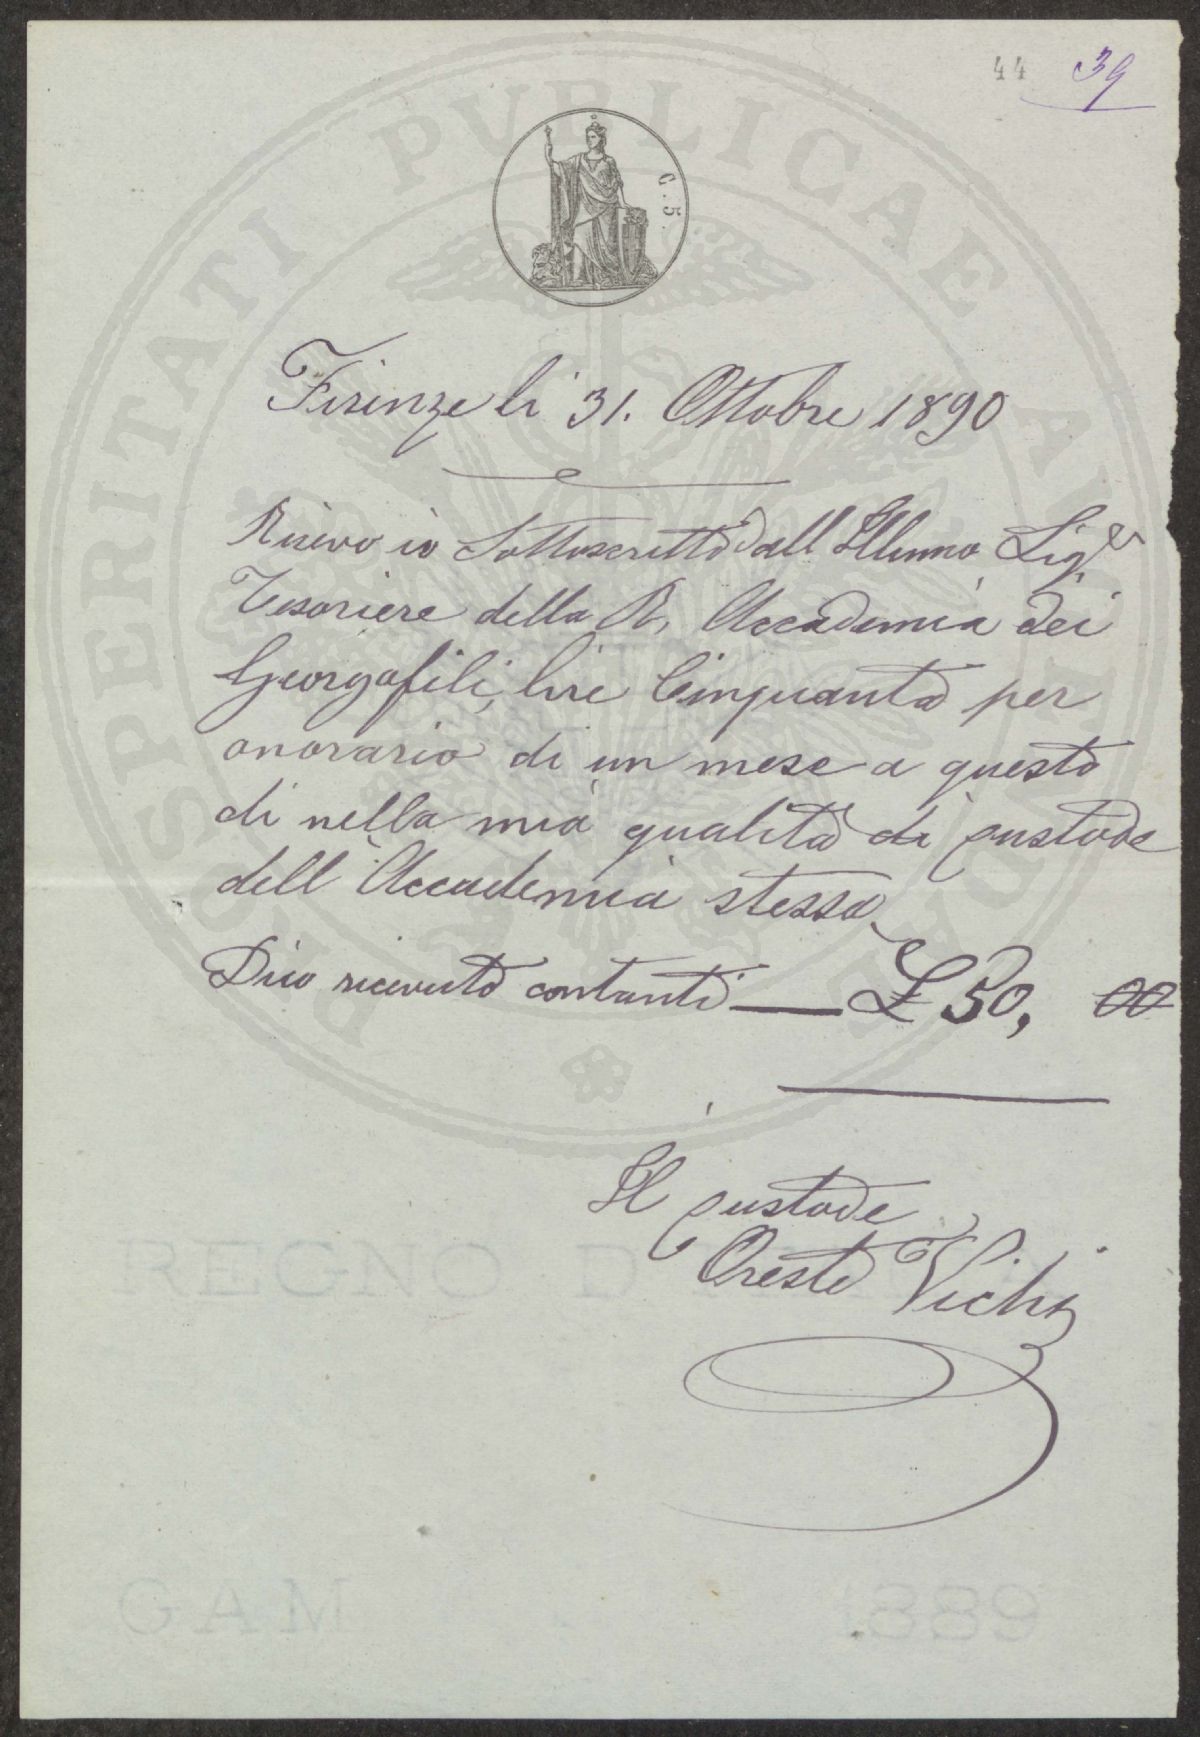 44 39
C. 5.
PROSPERITATI PUBLICAE AUGENDAE
Firenze li 31. Ottobre 1890
Ricevo io Sottoscritto dall Illmo Sigr
Tesoriere della R. Accademia dei
Georgofili, lire Cinquanta per
onorario di un mese a questo
di nella mia qualità di custode
dell'Accademia stessa
Dico ricevuto contanti — £ 50, 00
Il custode
Oreste Vichi
REGNO D
GAM 1889